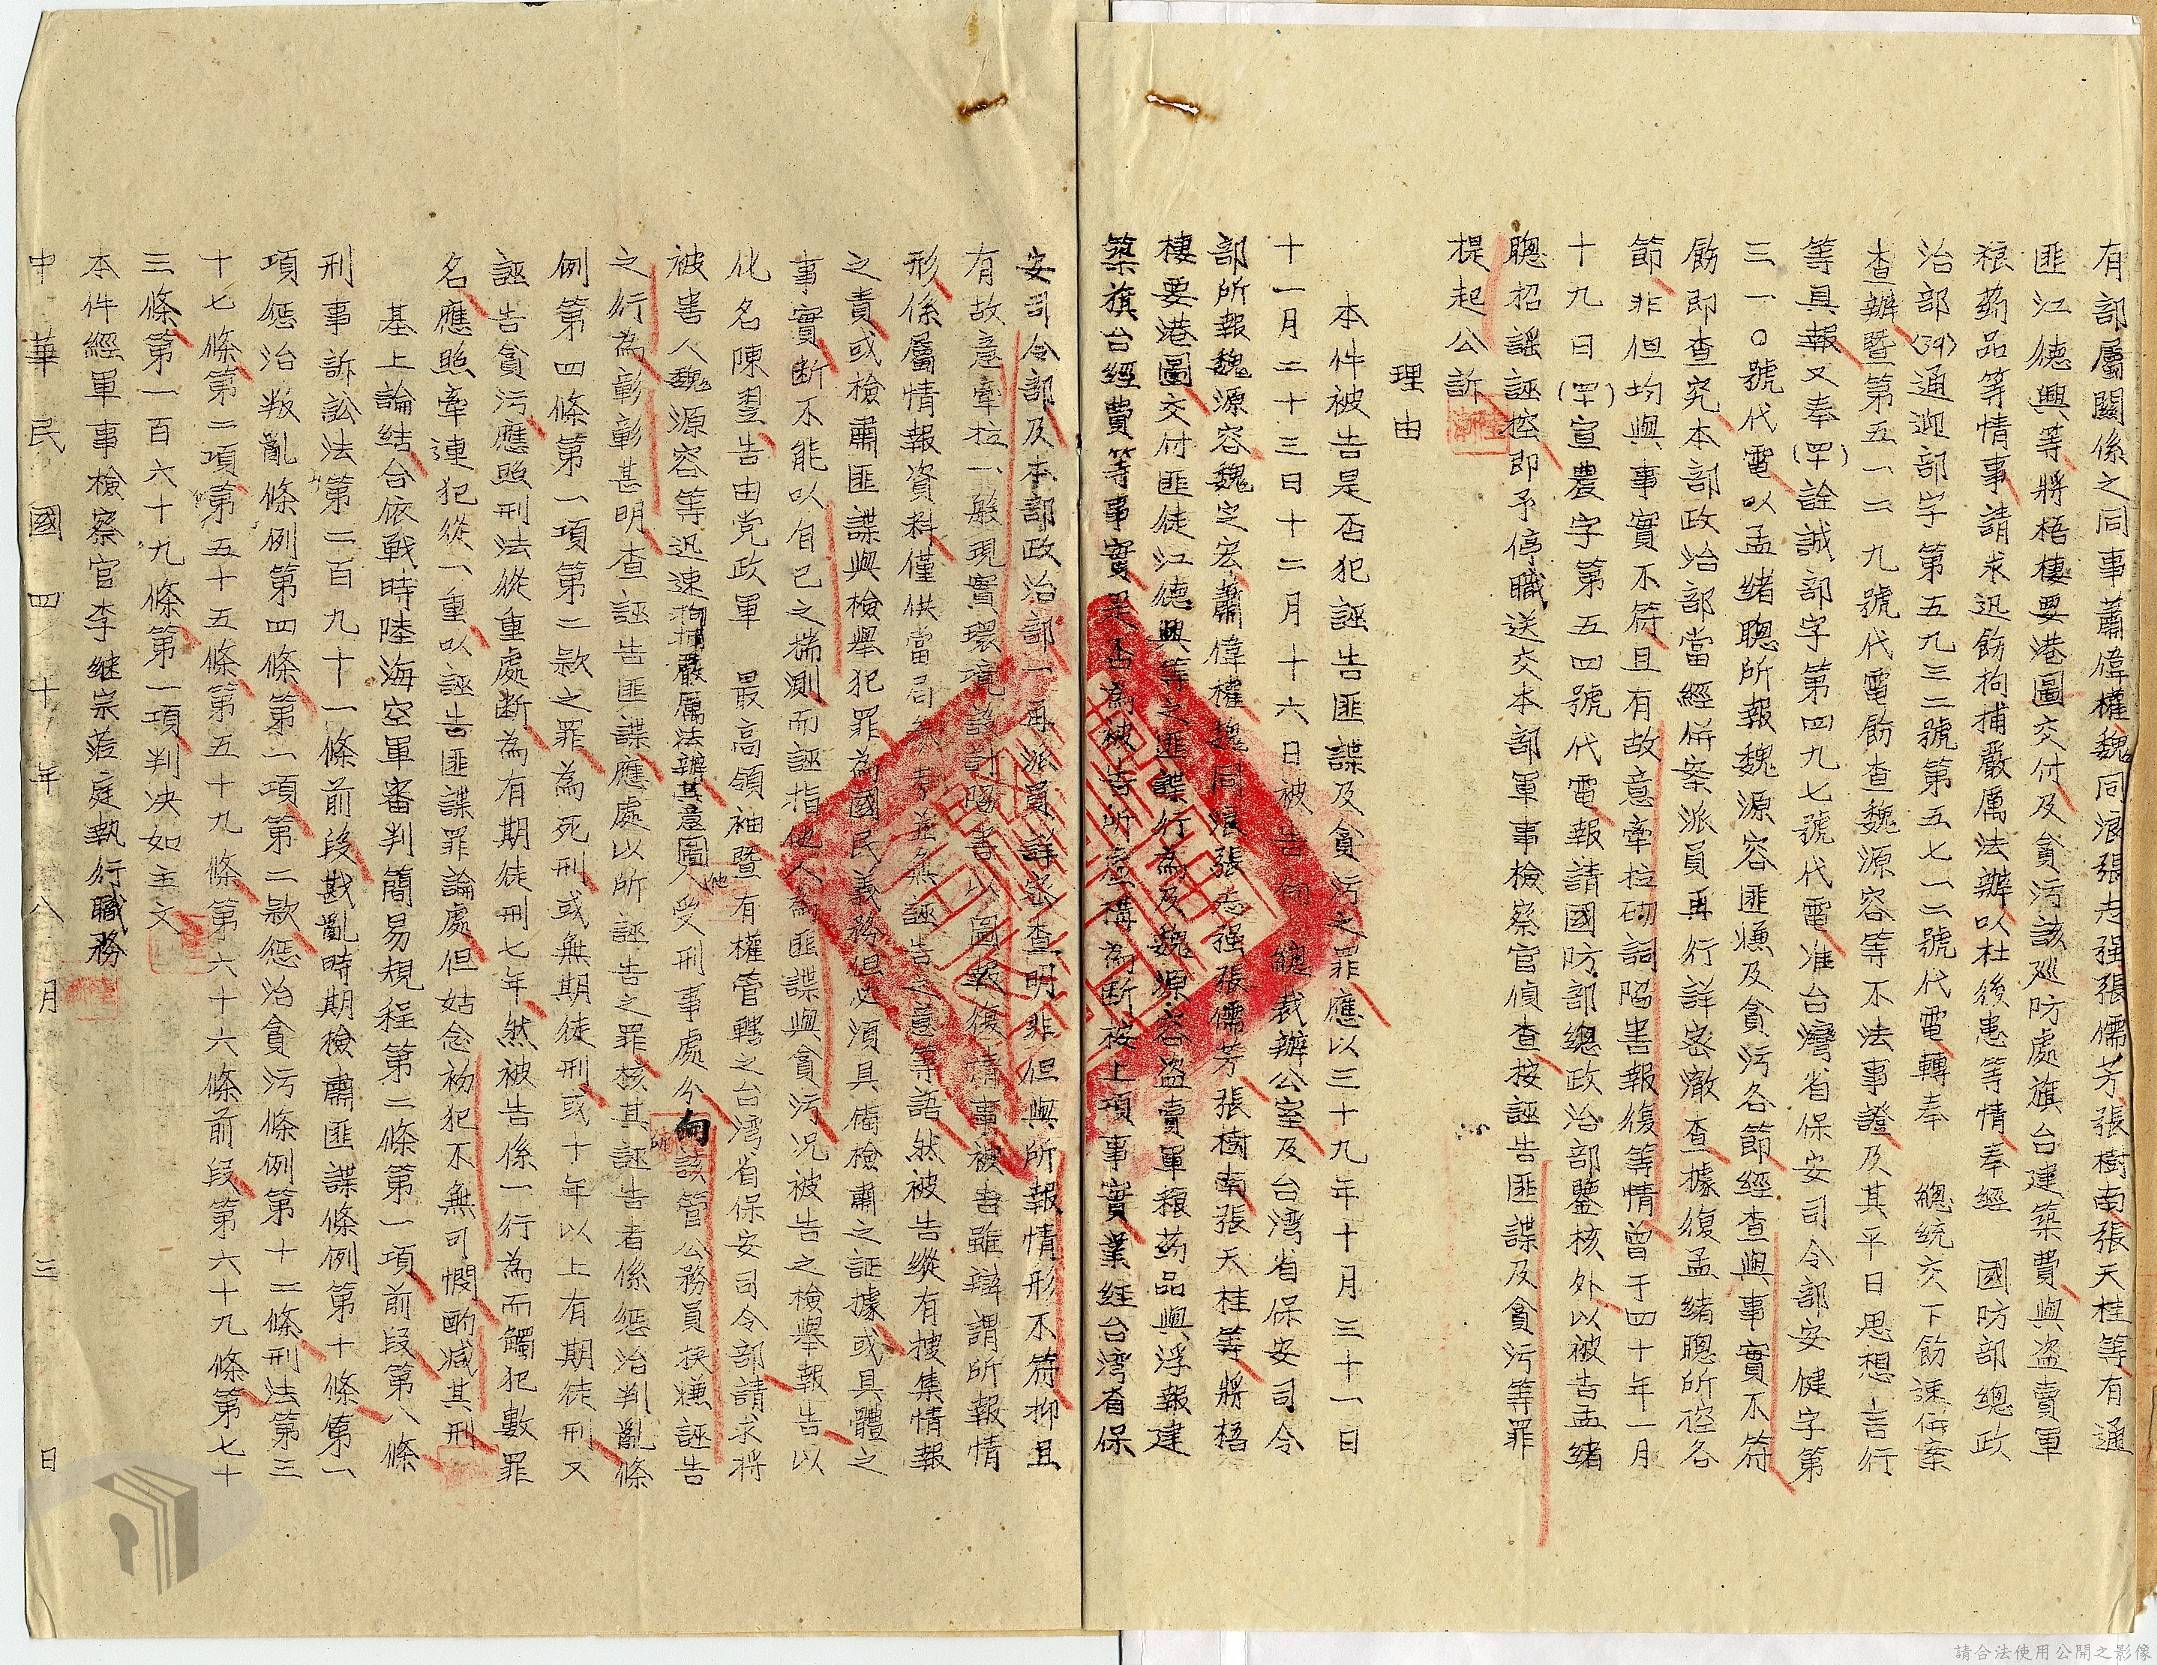 有部屬關係之同事蕭偉權魏同浪張志强張儒芳張樹南張天桂等有通
匪江德興等將梧棲要港圖交付及貪污該巡防處旗台建築費與盜賣軍
粮葯品等情事請求迅飭拘捕嚴厲法辦以杜後患等情奉經　國防部總政
治部(39)通迎部字第五九三二號第五七一二號代電轉奉　總統交下飭速併案
查辦暨第五一二九號代電飭查魏源容等不法事證及其平日思想言行
等具報又奉(四十)詮誠部字第四九七號代電准台灣省保安司令部安健字第
三一〇號代電以孟緒聰所報魏源容匪嫌及貪污各節經查與事實不符
飭即查究本部政治部當經併案派員再行詳密澈查據復孟緒聰所控各
節非但均與事實不符且有故意牽拉砌詞陷害報復等情曾于四十年一月
十九日(四十)宣農字第五四號代電報請國防部總政治部鑒核外以被告孟緒
聰招謠誣控即予停職送交本部軍事檢察官偵查按誣告匪諜及貪污等罪
提起公訴
理由
本件被告是否犯誣告匪諜及貪污之罪應以三十九年十月三十一日
十一月二十三日十二月十六日被告向　總裁辦公室及台灣省保安司令
部所報魏源容魏定宏蕭偉權魏同浪張志强張儒芳張樹南張天桂等將梧
棲要港圖交付匪徒江德興等之匪諜行為及魏源容盜賣軍糧葯品與浮報建
築旗台經費等事實是否為被告所虛構為斷按上項事實業經台灣省保
安司令部及本部政治部一再派員詳密查明非但與所報情形不符抑且
有故意牽拉一般現實環境設計陷害以圖報復情事被告雖辯謂所報情
形係屬情報資料僅供當局參考並無誣告之意等語然被告縱有搜集情報
之責或檢肅匪諜與檢舉犯罪為國民義務但必須具備檢肅之証據或具體之
事實斷不能以自己之揣測而誣指他人為匪諜與貪污况被告之檢舉報告以
化名陳翌告由党政軍　最高領袖暨有權管轄之台湾省保安司令部請求將
被害人魏源容等迅速拘捕嚴厲法辦其意圖他人受刑事處分向該管公務員挾嫌誣告
之行為彰彰甚明查誣告匪諜應處以所誣告之罪核其誣告者係懲治判亂條
例第四條第一項第二款之罪為死刑或無期徒刑或十年以上有期徒刑又
誣告貪污應照刑法從重處斷為有期徒刑七年然被告係一行為而觸犯數罪
名應照牽連犯從一重以誣告匪諜罪論處但姑念初犯不無可憫酌減其刑
基上論結合依戰時陸海空軍審判簡易規程第二條第一項前段第八條
刑事訴訟法第二百九十一條前段戡亂時期檢肅匪諜條例第十條第一
項懲治叛亂條例第四條第一項第二款懲治貪污條例第十二條刑法第三
十七條第二項第五十五條第五十九條第六十六條前段第六十九條第七十
三條第一百六十九條第一項判决如主文
本件經軍事檢察官李继宗蒞庭執行職務
中華民國四十年八月三日
請合法使用公開之影像